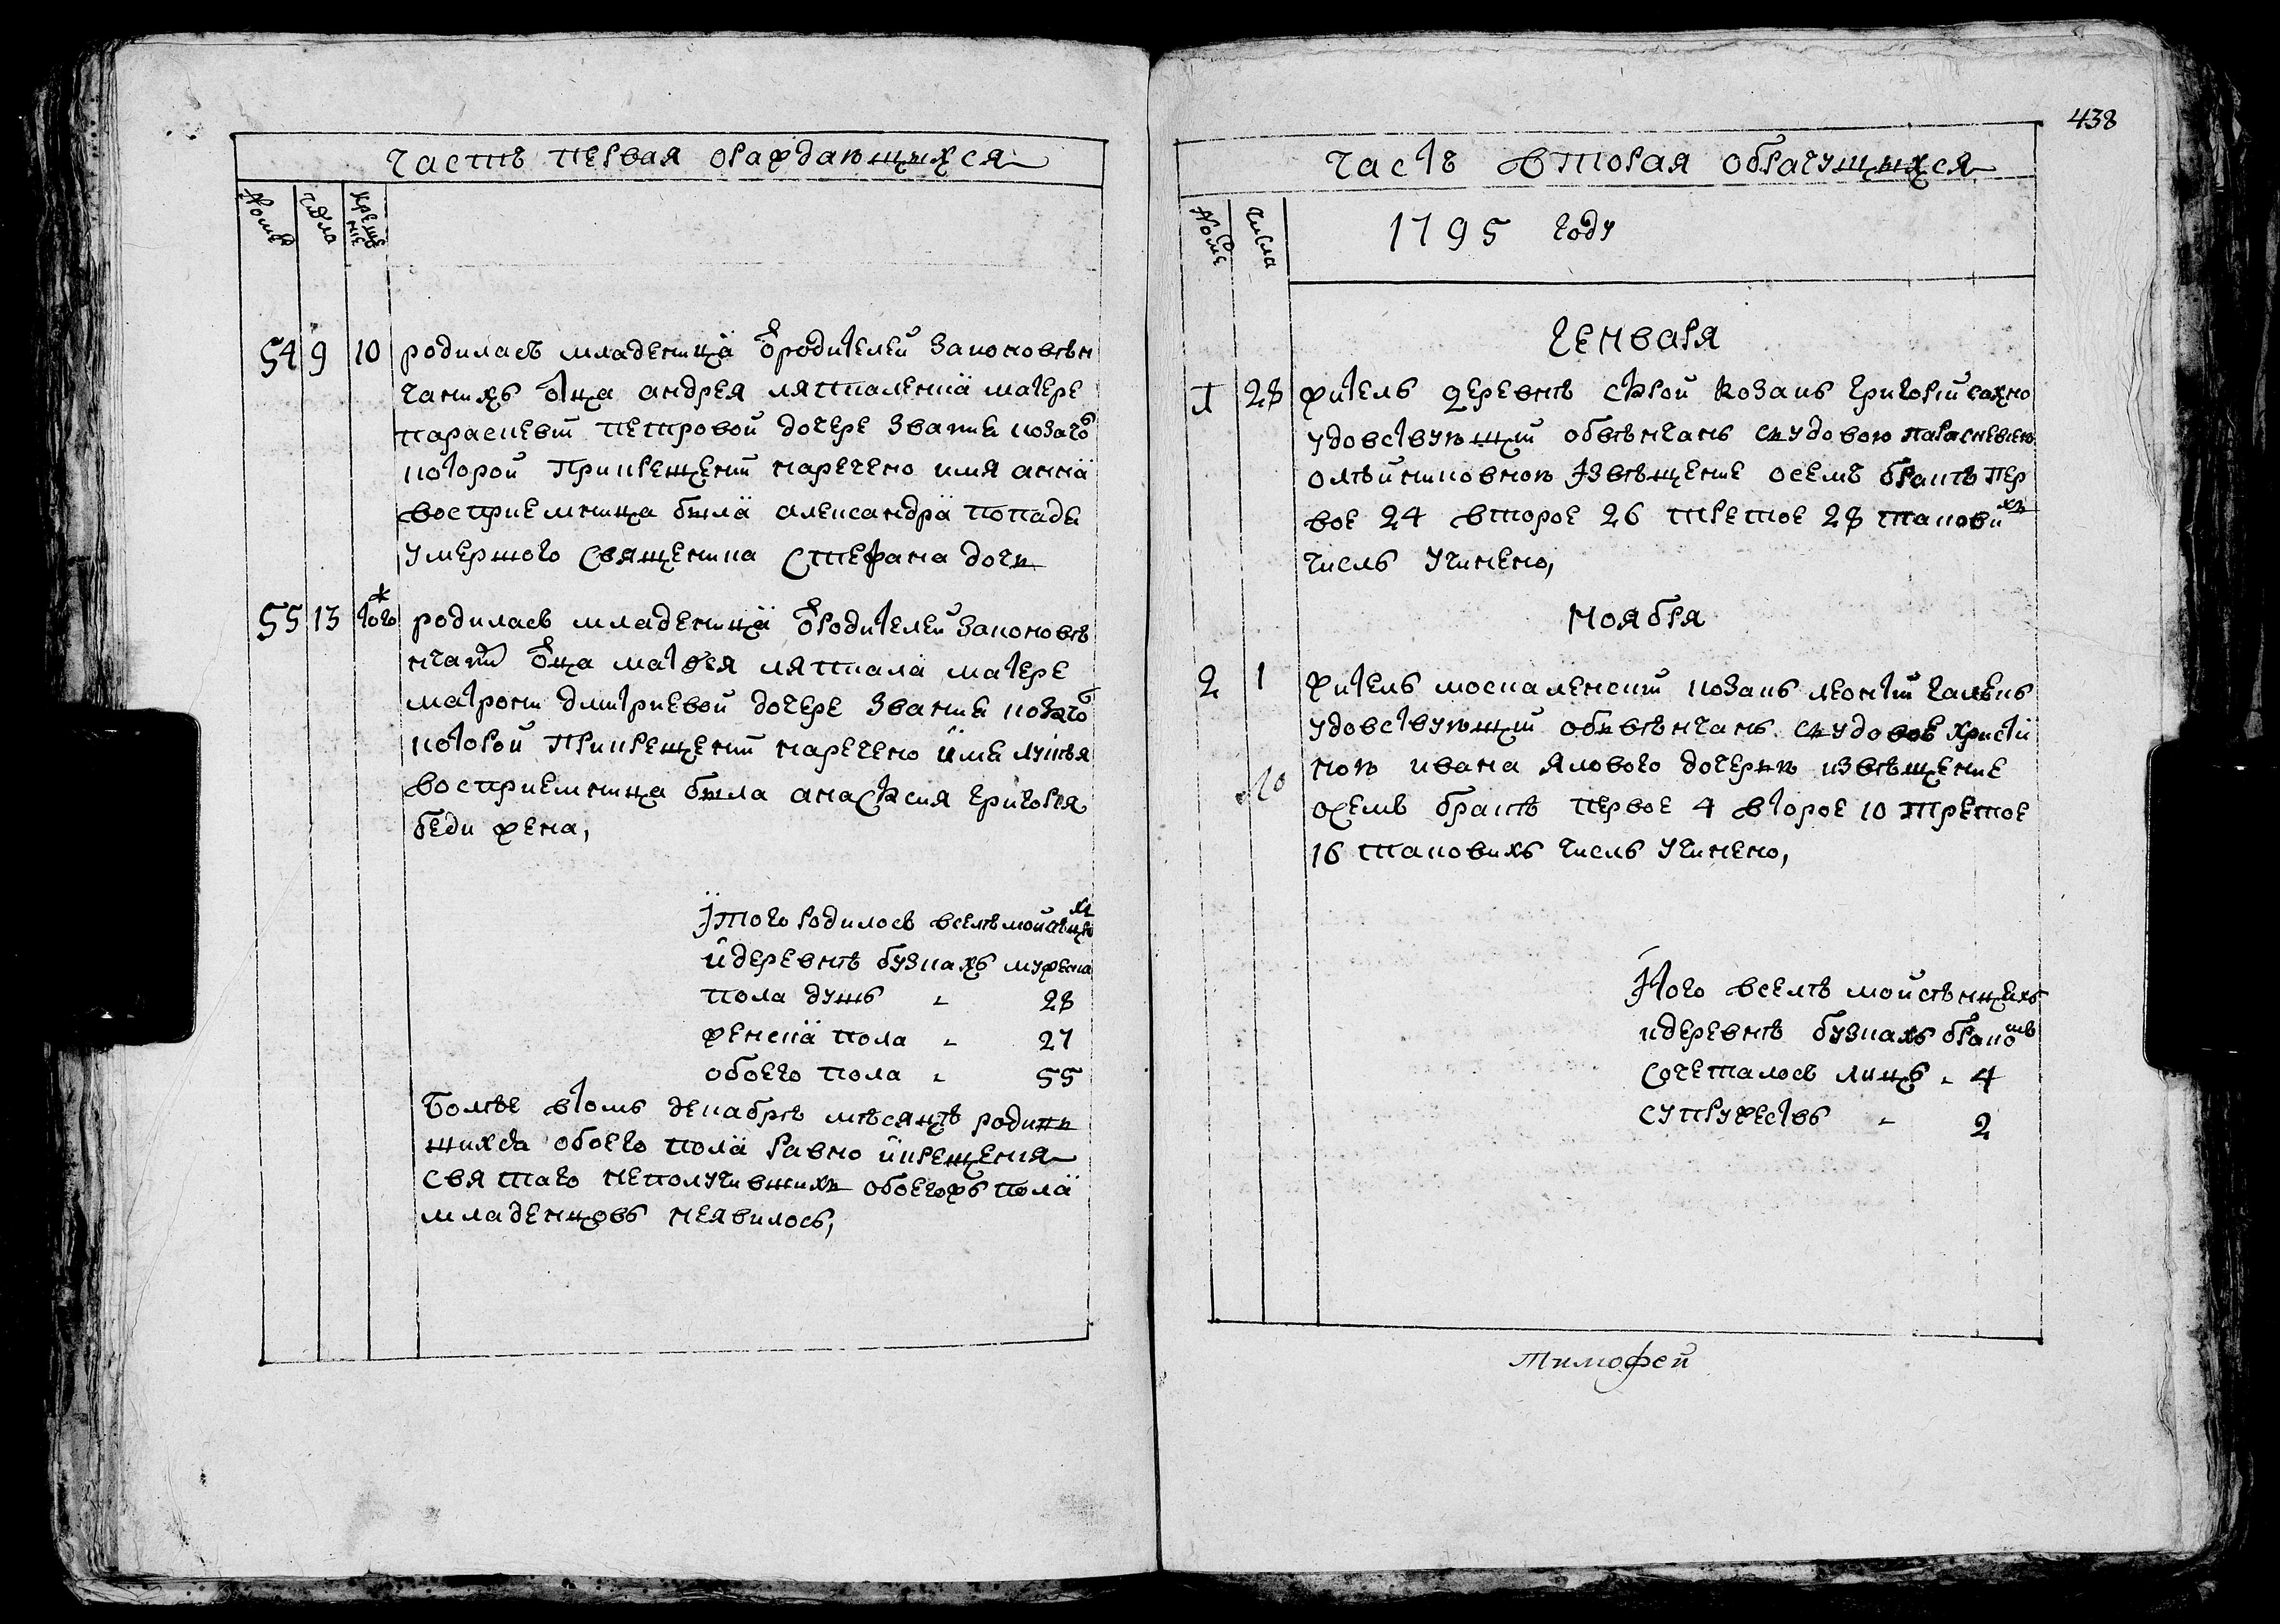 438
Часть первая ораждающихся
Номеръ
Числа
Крещение
54 9 10 родилась младеница ѿ родителей законовѣн
чаних отца андрея ляпкаленка матере
параскевии петровой дочере звание козачо
которой при крещении наречено имя анна
восприемница была александра попадя
умершого священика стефана дочь
55 13 того ж родилась младеница ѿ родителей законовѣ
нчаних отца матфея ляпкала матере
матрони дмитриевой дочере звание козачо
которой при крещении наречено имя лукия
восприемница была анастасия григория
беди жена,
Итого родилось вселѣ мойсѣнцях
и деревнѣ бузках мужеска
пола душъ 28
женска пола 27
обоего пола 55
Болѣе в томъ декабрѣ мѣсяцѣ родив
шихся обоего пола равно и крещения
святаго неполучивших обоегожъ пола
младенцовъ неявилось,
Часть вторая обрачущихся
Номеръ
Числа
1795 году
Генваря
1 28 житель деревнѣ старой козакъ григорий сахно
удовствующий обвѣнчанъ с удовою параскевиею
олѣйниковною извѣщение о семъ бракѣ пер
вое 24 второе 26 третое 28 таковых
числъ учинено,
Ноября
2 1 житель москаленский козакъ леонтий
удовствующий обвѣнчанъ с удовою христи
ною ивана ялового дочерью извѣщение
о семъ бракѣ первое 4 второе 10 третое
16 таковихъ числъ учинено,
Итого вселѣ мойсѣнцехъ
и деревнѣ бузкахъ бракомъ
сочеталось лицъ 4
супружествъ 2
Тимофей